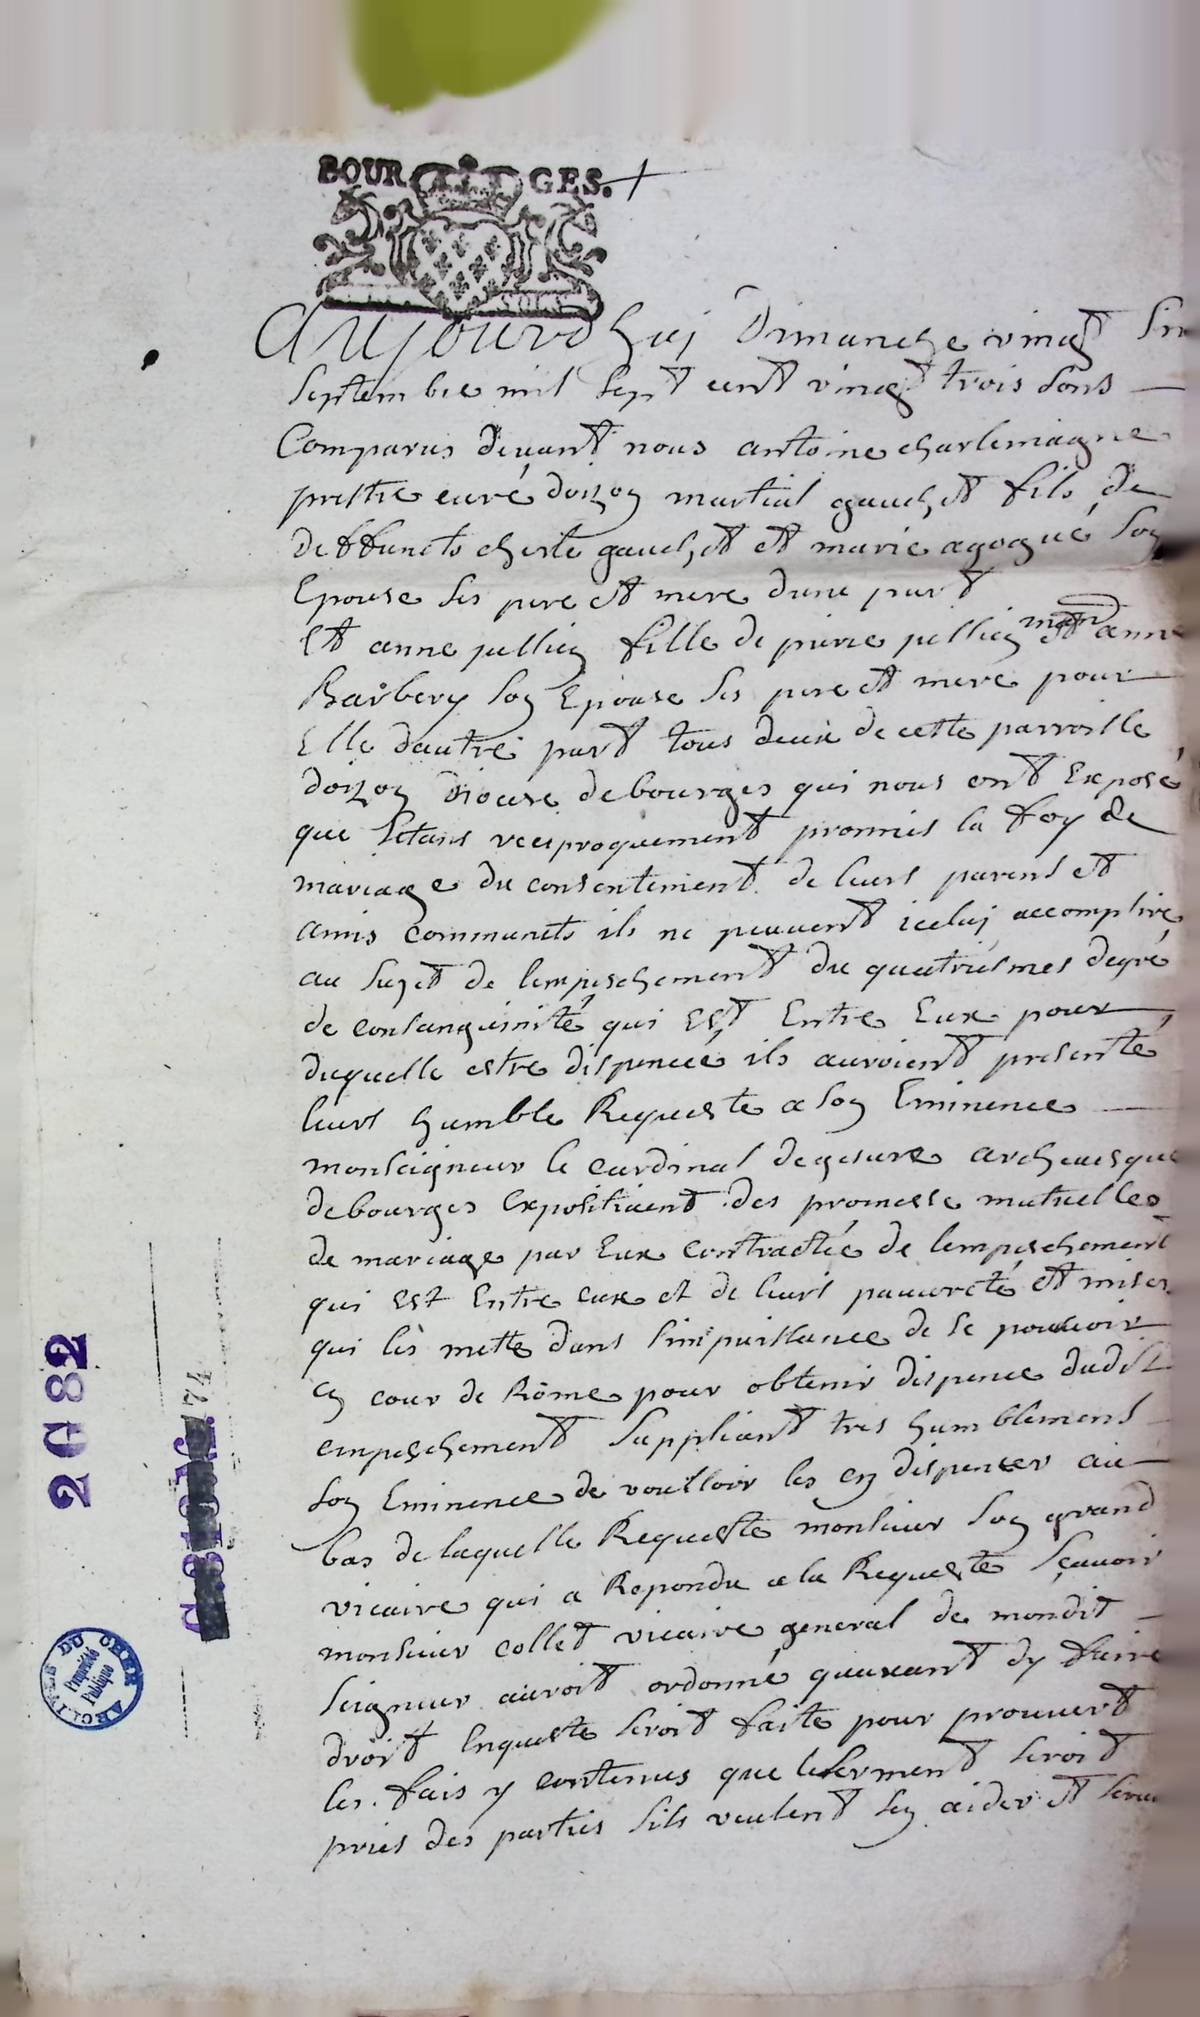 BOURGES.
Aujourdhuj Dimanche vingt Six
Septembre mil Sept cent vingt trois Sons
Comparus devant nous antoine charlemagne
prestre curé doizon martial gauchet fils de
deffuncts gauchet et marie agogué Son
Epouse Ses pere et mere dune part
Et anne pellien fille de pierre pellien man. et anne
Barbery Son Epouse Ses pere et mere pour
Elle dautre part tous deux de cette parroisse
doizon Diocese debourges qui nous ont Exposé
que Setans reciproquement promis la foy de
mariage du consentement de leurs parens et
amis communets ils ne peuvent iceluj accomplire
au Sujet de lempeschement du quatriesmes degré
de consanguinité qui Est Entre Eux pour
duquelle estre dispencé ils auroient presenté
leurs humble Requeste a Son Eminence
monseigneur le cardinal degesvre archevesque
debourges Expositivent des promesse mutuelles
de mariage par Eux contractée de lempeschement
qui Est Entre eux et de leurs pauvreté et miser
qui les mette dans Limpuissance de Se pouvoir
en cour de Rome pour obtenir dispence dudit
empeschement Suppliant tres humblement
Son Eminence de voulloir les en dispenser au
bas de laquelle Requeste monsieur Son grand
vicaire qui a Repondu a la Requeste Sçavoir
monsieur collet vicaire general de mondit
Seigneur auroit ordonné quavant dy faire
droit Enqueste Seroit faite pour prouvert
les fais y contenus que leserment Seroit
pries des parties Sils veulent Sen aider et
2 G 82
74
ARCHIVES DU CHER
Propriété
Publique